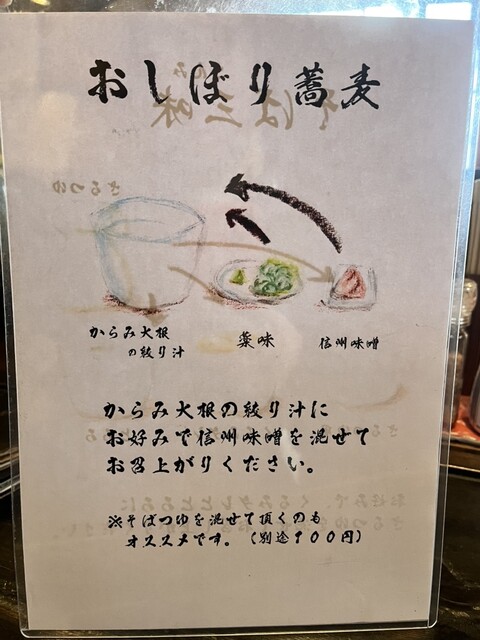 おしぼり蕎麦
からみ大根
の絞り汁
薬味
信州味噌
からみ大根の絞り汁に
お好みで信州味噌を混ぜて
お召上がりください。
※そばつゆを混ぜて頂くのも
オススメです。(別途100円)
そば三味
ざるつゆ